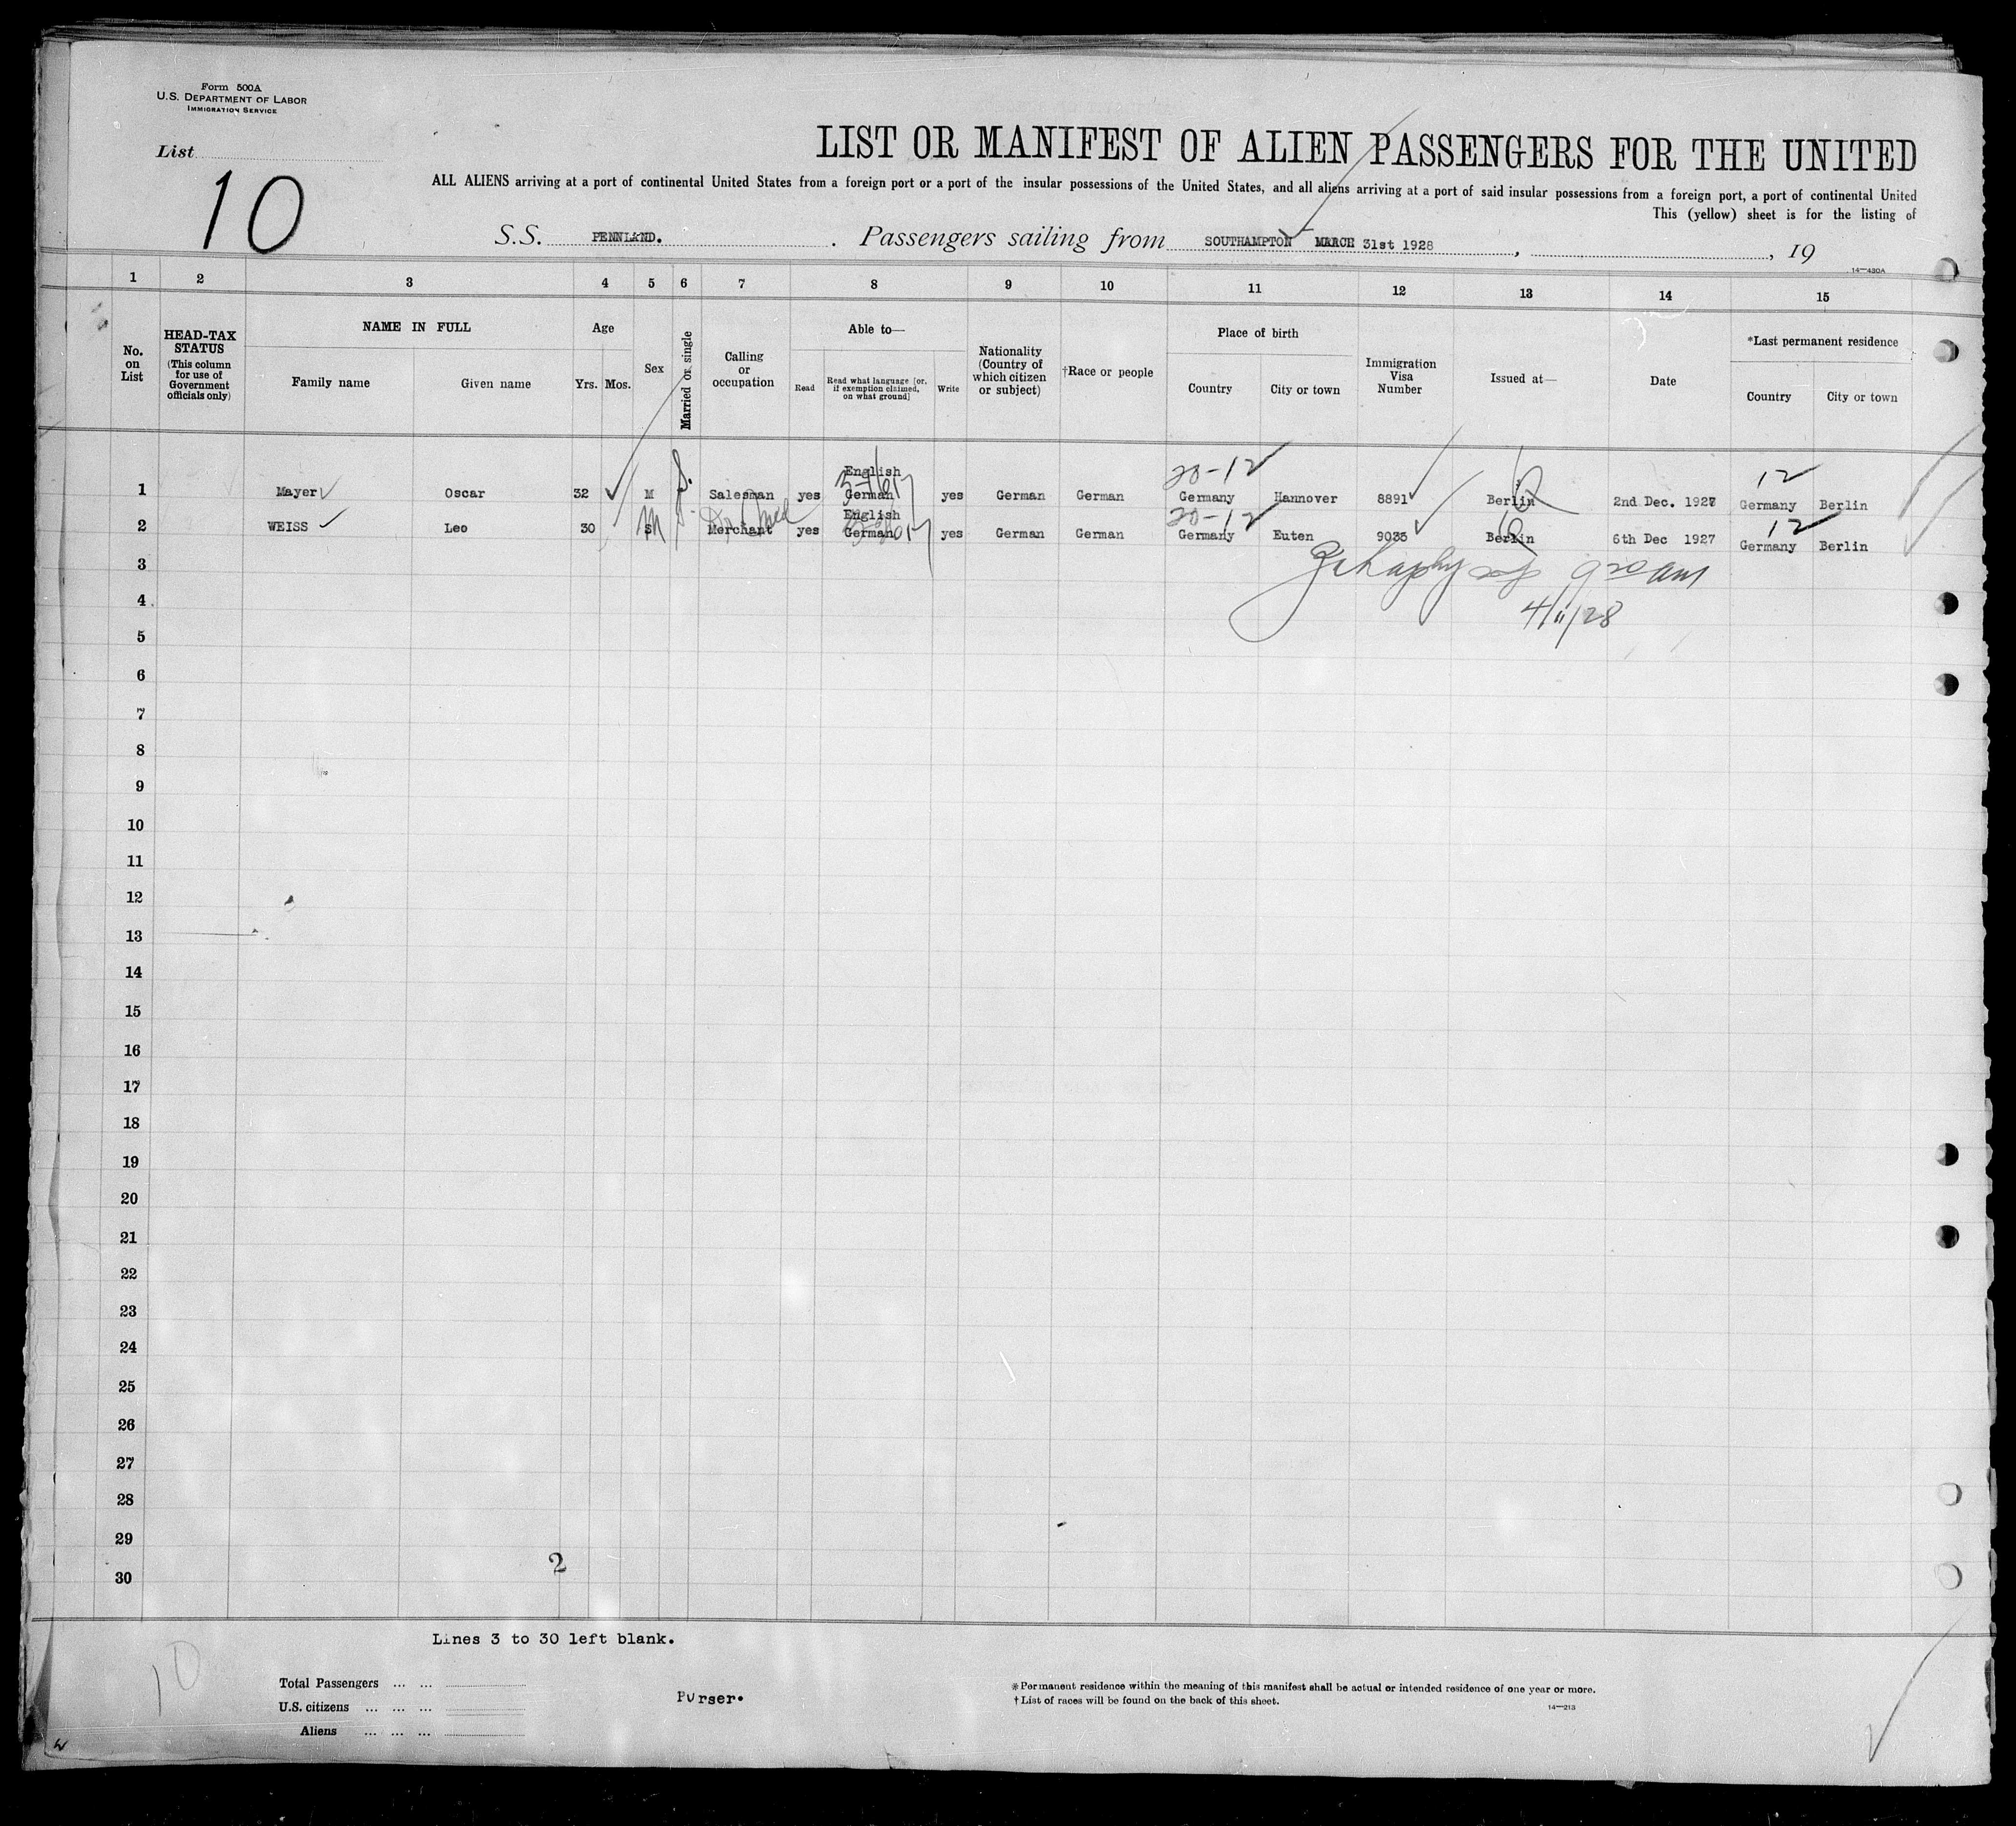 Form 500A
U.S. DEPARTMENT OF LABOR
IMMIGRATION SERVICE
List
10
LIST OR MANIFEST OF ALIEN PASSENGERS FOR THE UNITED
ALL ALIENS arriving at a port of continental United States from a foreign port or a port of the insular possessions of the United States, and all aliens arriving at a port of said insular possessions from a foreign port, a port of continental United
This (yellow) sheet is for the listing of
S.S. PENNLAND. . Passengers sailing from SOUTHAMPTON MARCH 31st 1928 , , 19
14—430A
1 2 3 4 5 6 7 8 9 10 11 12 13 14 15
No. on List
HEAD-TAX STATUS (This column for use of Government officials only)
NAME IN FULL
Family name Given name
Age
Yrs. Mos.
Sex
Married or single
Calling or occupation
Able to—
Read
Read what language [or, if exemption claimed, on what ground]
Write
Nationality (Country of which citizen or subject)
†Race or people
Place of birth
Country City or town
Immigration Visa Number
Issued at—
Date
*Last permanent residence
Country City or town
English 20-12 12
1 Mayer Oscar 32 M S. Salesman yes German yes German German Germany Hannover 8891 Berlin 2nd Dec. 1927 Germany Berlin
English 20-12 12
2 WEISS Leo 30 S M Merchant yes German yes German German Germany Euten 9035 Berlin 6th Dec 1927 Germany Berlin
3
4 4/11/28
5
6
7
8
9
10
11
12
13
14
15
16
17
18
19
20
21
22
23
24
25
26
27
28
29
2
30
Lines 3 to 30 left blank.
10
Total Passengers ... ...
U.S. citizens ... ... ...
Aliens ... ... ...
Purser.
* Permanent residence within the meaning of this manifest shall be actual or intended residence of one year or more.
† List of races will be found on the back of this sheet.
14—213